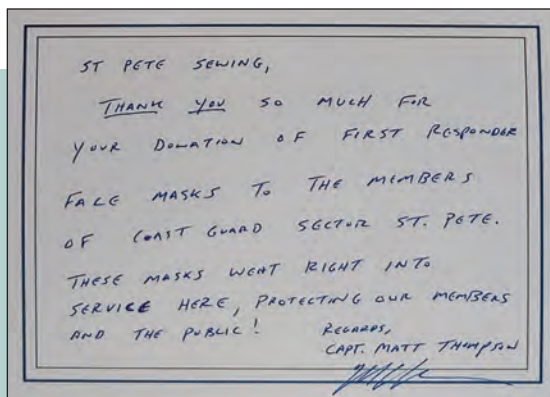 ST PETE SEWING,
THANK YOU SO MUCH FOR
YOUR DONATION OF FIRST RESPONDER
FACE MASKS TO THE MEMBERS
OF COAST GUARD SECTOR ST. PETE.
THESE MASKS WENT RIGHT INTO
SERVICE HERE, PROTECTING OUR MEMBERS
AND THE PUBLIC!
REGARDS,
CAPT. MATT THOMPSON